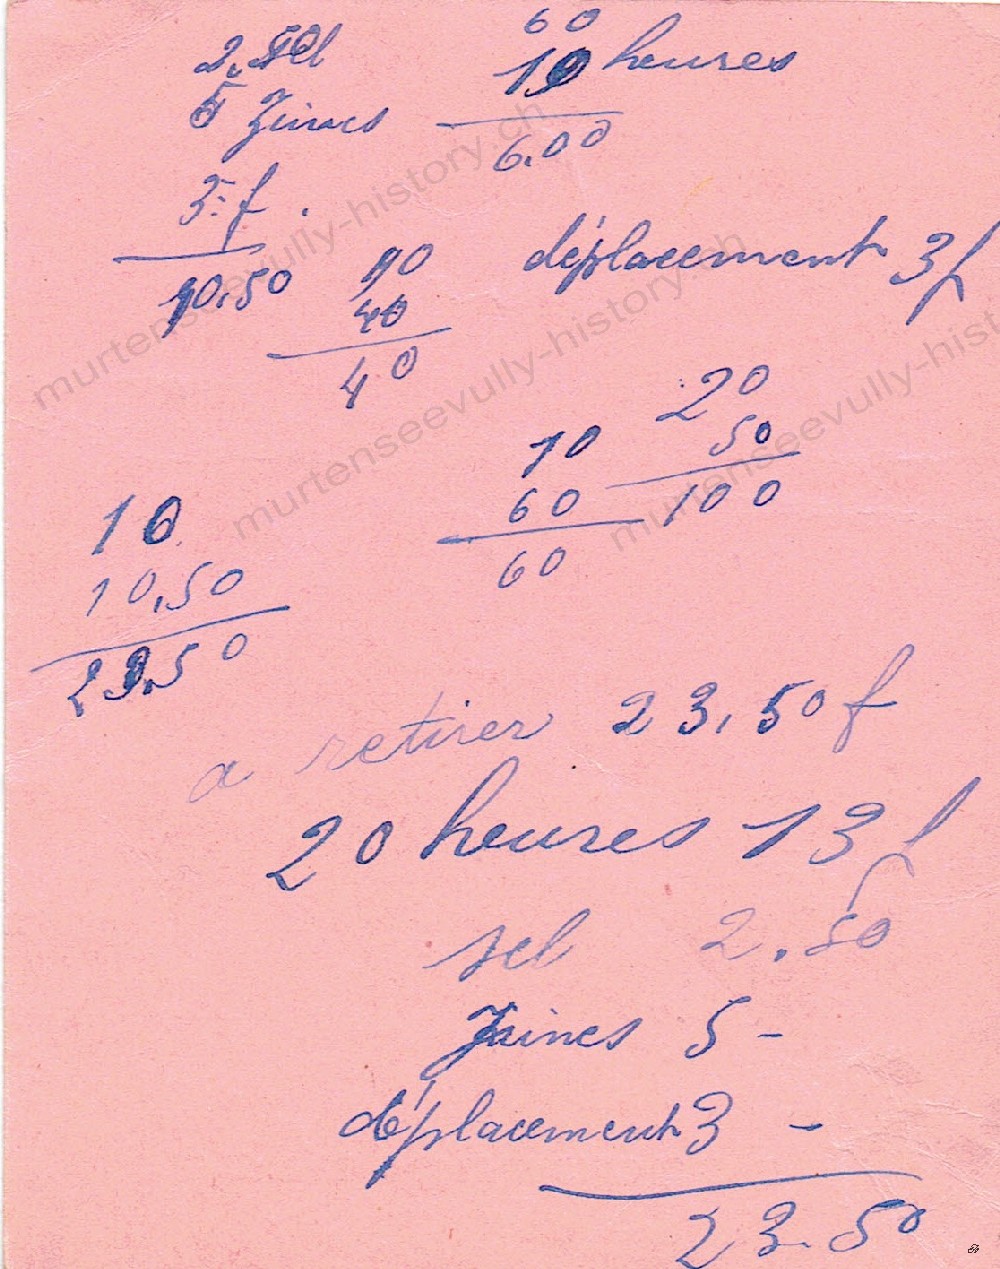 2.50 60
10 heures
5
6.00
3 f.
10.50
10
40
40
déplacement 3 f
20
50
100
10
60
60
10
10,50
23.50
a retirer 23,50 f
20 heures 13 f
sel 2.50
5 -
déplacement 3 -
23.50
murtenseevully-history.ch
murtenseevully-history.ch